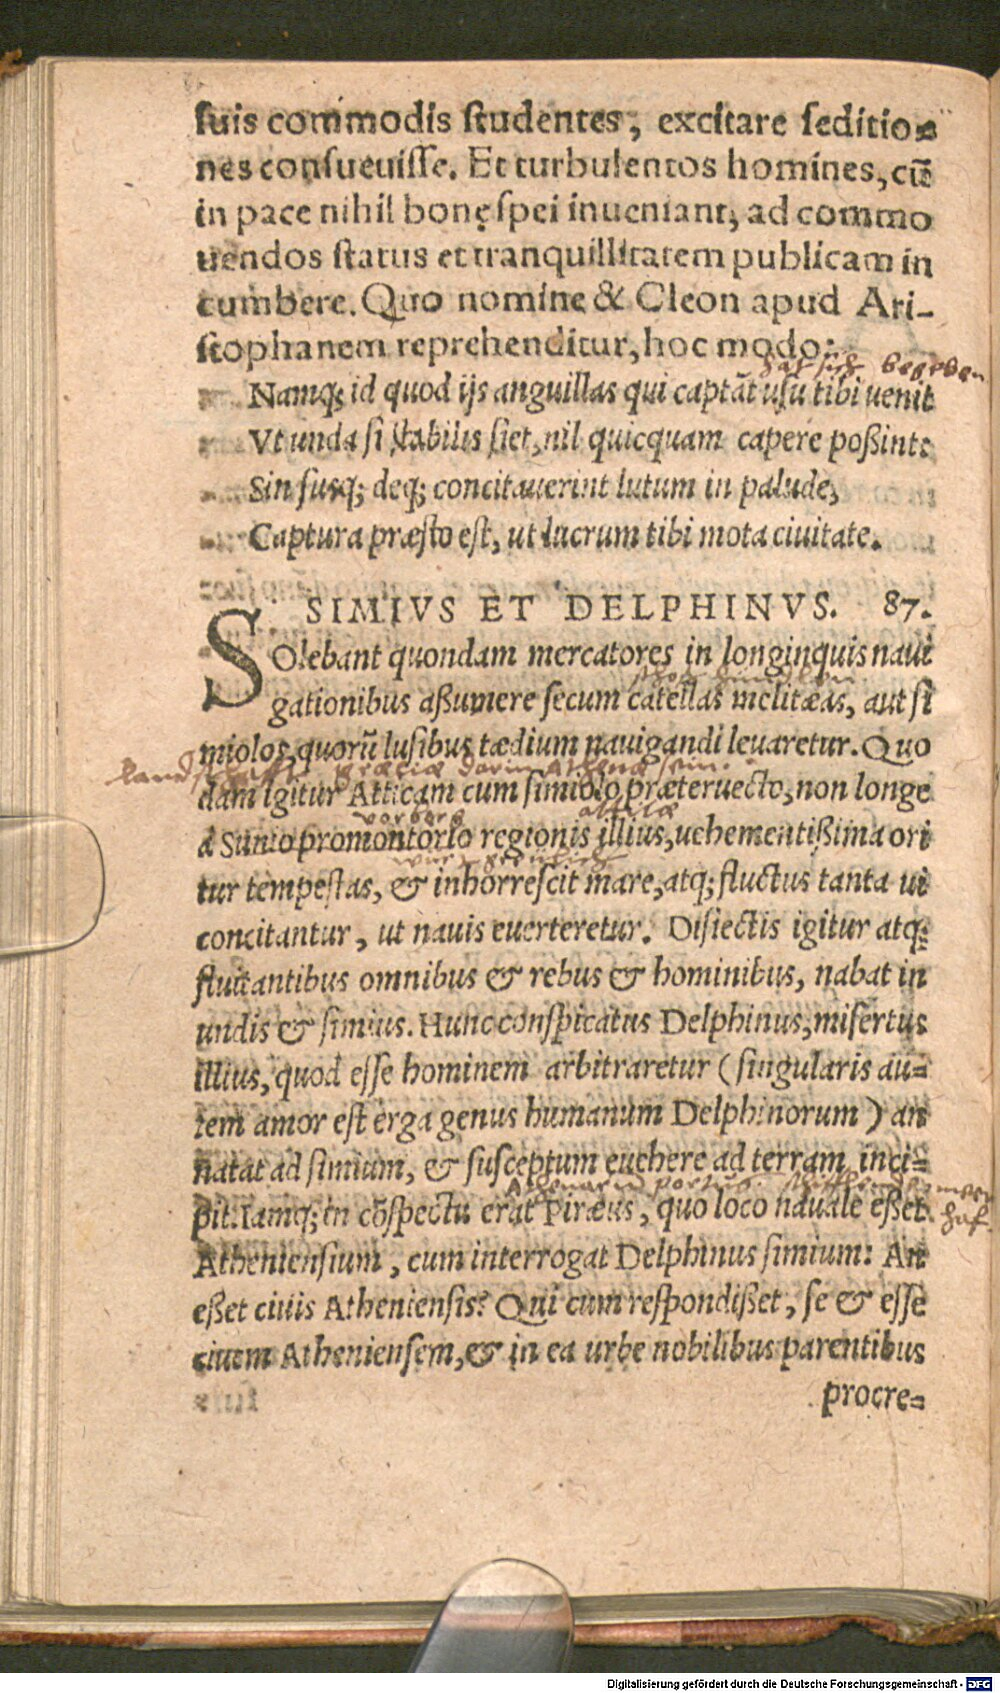 suis commodis studentes, excitare seditio⸗
nes consueuisse. Et turbulentos homines, cū
in pace nihil bonę spei inueniant, ad commo
uendos status et tranquillitatem publicam in
cumbere. Quo nomine & Cleon apud Ari-
stophanem reprehenditur, hoc modo:
hat sich begeben
Namq; id quod ijs anguillas qui captāt usu tibi uenit
Vt unda si stabilis siet, nil quicquam capere poßint:
Sin susq; deq; concitauerint lutum in palude,
Captura præsto est, ut lucrum tibi mota ciuitate.
SIMIVS ET DELPHINVS. 87.
SOlebant quondam mercatores in longinquis naui
gationibus aßumere secum catellas melitæas, aut si
miolos, quorū lusibus tædium nauigandi leuaretur. Quo
landschafft græciæ darin Athenæ sein.
dam igitur Atticam cum simiolo præteruecto, non longe
à Sunio promontorio regionis illius, uehementißima ori
tur tempestas, & inhorrescit mare, atq; fluctus tanta ui
concitantur, ut nauis euerteretur. Disiectis igitur atq;
fluitantibus omnibus & rebus & hominibus, nabat in
undis & simius. Hunc conspicatus Delphinus, misertus
illius, quod esse hominem arbitraretur (singularis au⸗
tem amor est erga genus humanum Delphinorum) an
natat ad simium, & susceptum euehere ad terram inci⸗
pit. Iamq; in cōspectu erat Piræus, quo loco nauale esset
Atheniensium, cum interrogat Delphinus simium: An
esset ciuis Atheniensis? Qui cum respondißet, se & esse
ciuem Atheniensem, & in ea urbe nobilibus parentibus
procre⸗
Digitalisierung gefördert durch die Deutsche Forschungsgemeinschaft - DFG